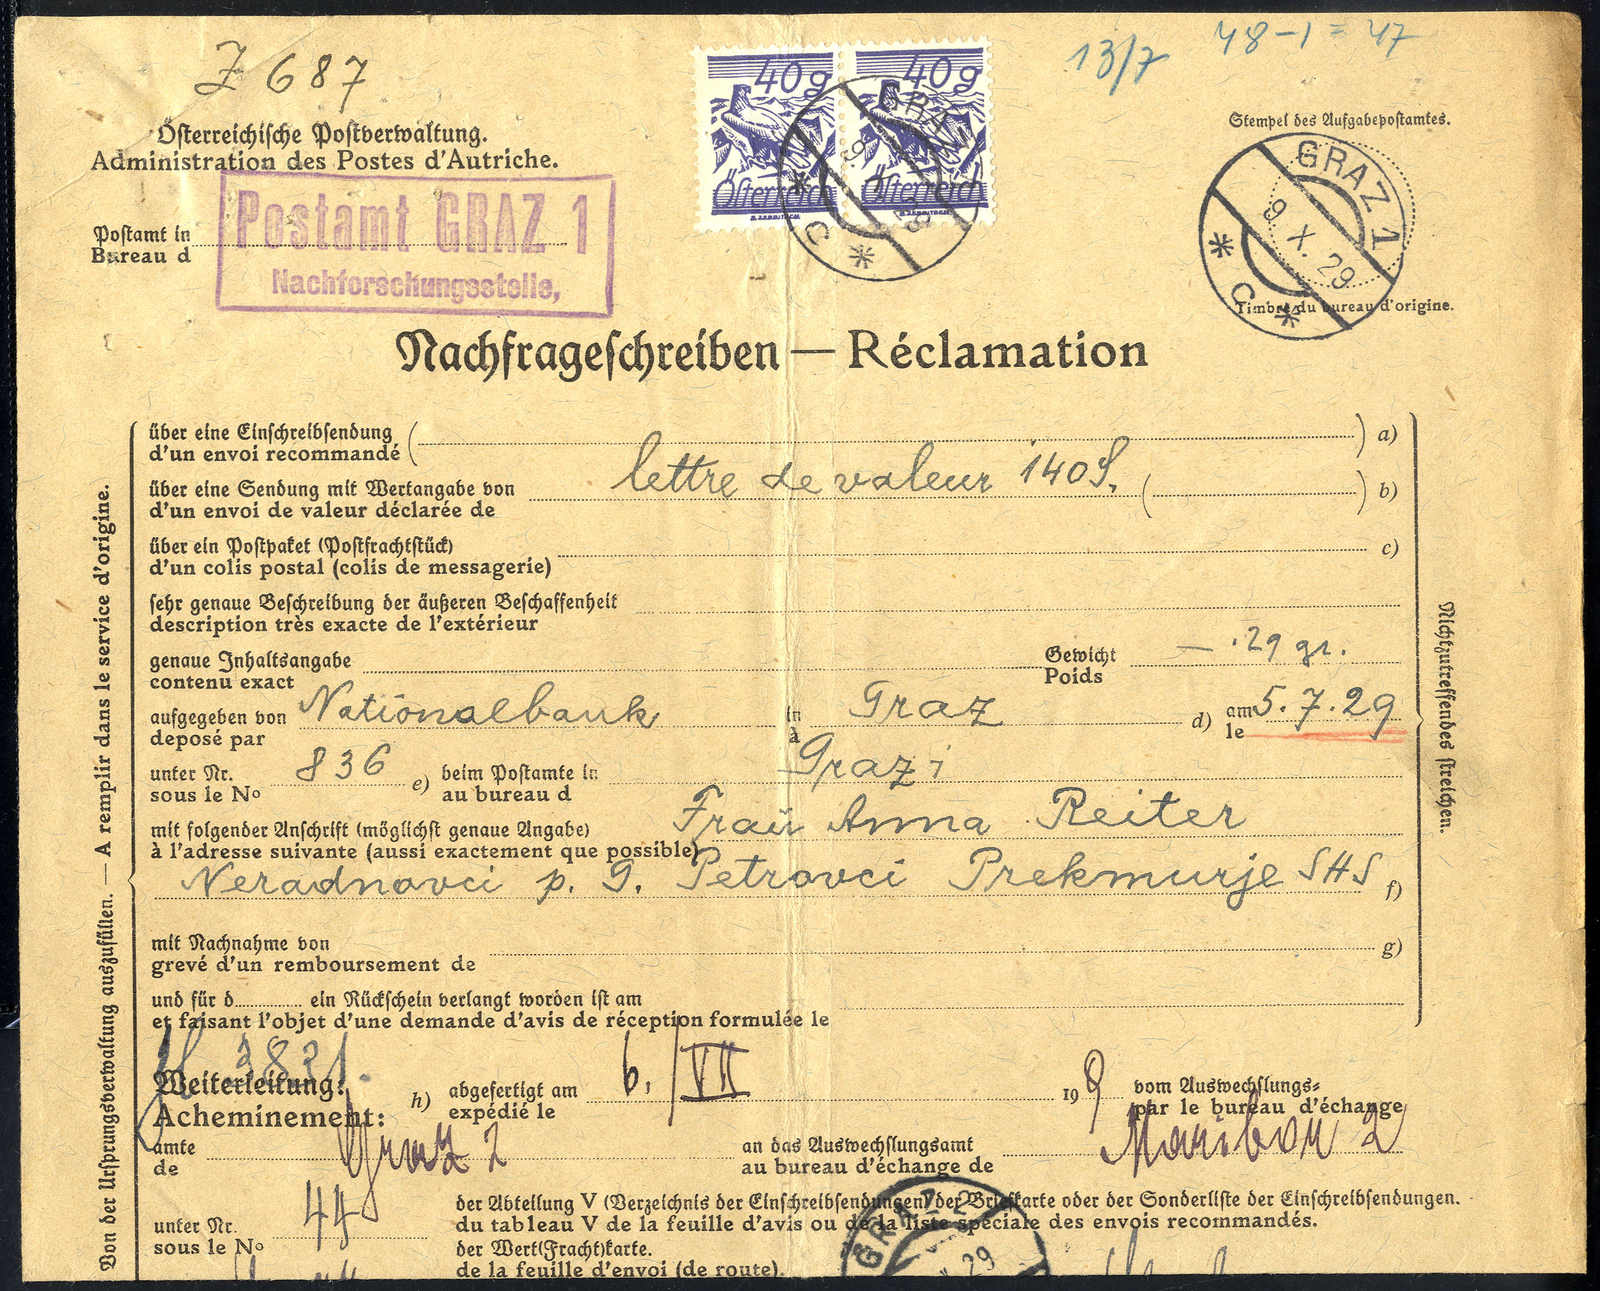 Z 687
13/7
48 - 1 = 47
Österreichische Postverwaltung.
Administration des Postes d'Autriche.
40g 40g
Österreich Österreich
GRAZ 1
9. X. 29
* C *
Stempel des Aufgabepostamtes.
GRAZ 1
9. X. 29
* C *
Timbre du bureau d'origine.
Postamt in
Bureau d
Postamt GRAZ 1
Nachforschungsstelle,
Nachfrageschreiben — Réclamation
über eine Einschreibsendung ( ) a)
d'un envoi recommandé
über eine Sendung mit Wertangabe von lettre de valeur 140 S. ( ) b)
d'un envoi de valeur déclarée de
über ein Postpaket (Postfrachtstück) c)
d'un colis postal (colis de messagerie)
sehr genaue Beschreibung der äußeren Beschaffenheit
description très exacte de l'extérieur
genaue Inhaltsangabe Gewicht — 29 gr.
contenu exact Poids
aufgegeben von Nationalbank in Graz d) am 5.7.29
deposé par à le
unter Nr. 836 e) beim Postamte in Graz 1
sous le No au bureau d
mit folgender Anschrift (möglichst genaue Angabe) Frau Anna Reiter
à l'adresse suivante (aussi exactement que possible)
Neradnovci p. G. Petrovci Prekmurje SHS f)
mit Nachnahme von g)
grevé d'un remboursement de
und für d ein Rückschein verlangt worden ist am
et faisant l'objet d'une demande d'avis de réception formulée le
Weiterleitung: h) abgefertigt am 6./VII 199 vom Auswechslungs=
Acheminement: expédié le par le bureau d'échange
amte Graz 2 an das Auswechslungsamt Maribor 2
de au bureau d'échange de
unter Nr. 44 der Abteilung V (Verzeichnis der Einschreibsendungen) der Briefkarte oder der Sonderliste der Einschreibsendungen.
sous le No du tableau V de la feuille d'avis ou de la liste spéciale des envois recommandés.
der Wert(Fracht)karte.
de la feuille d'envoi (de route).
GRAZ 2
29
Von der Ursprungsverwaltung auszufüllen. — A remplir dans le service d'origine.
Nichtzutreffendes streichen.